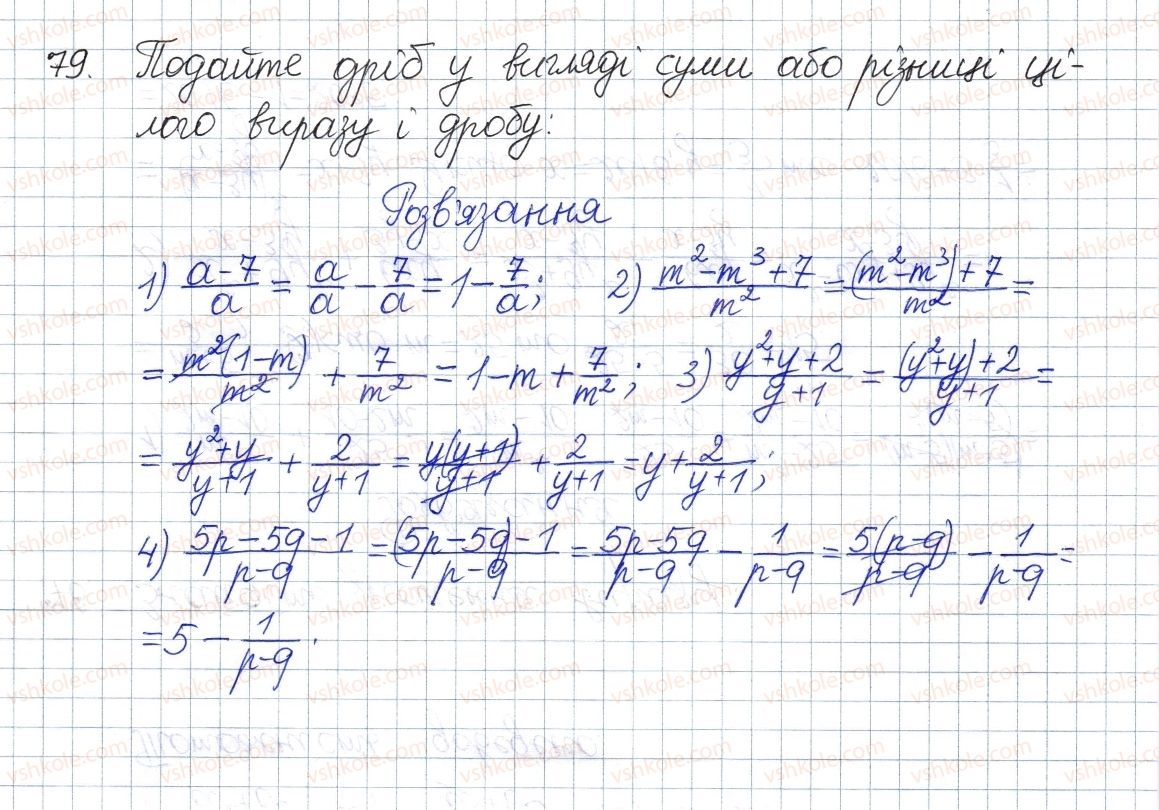 79. Подайте дріб у вигляді суми або різниці ці-
лого виразу і дробу:
Розв'язання
1) (a-7)/a = a/a - 7/a = 1 - 7/a; 2) (m²-m³+7)/m² = ((m²-m³)+7)/m² =
= m²(1-m)/m² + 7/m² = 1-m + 7/m²; 3) (y²+y+2)/(y+1) = ((y²+y)+2)/(y+1) =
= (y²+y)/(y+1) + 2/(y+1) = y(y+1)/(y+1) + 2/(y+1) = y + 2/(y+1);
4) (5p-5q-1)/(p-q) = ((5p-5q)-1)/(p-q) = (5p-5q)/(p-q) - 1/(p-q) = 5(p-q)/(p-q) - 1/(p-q) =
= 5 - 1/(p-q).